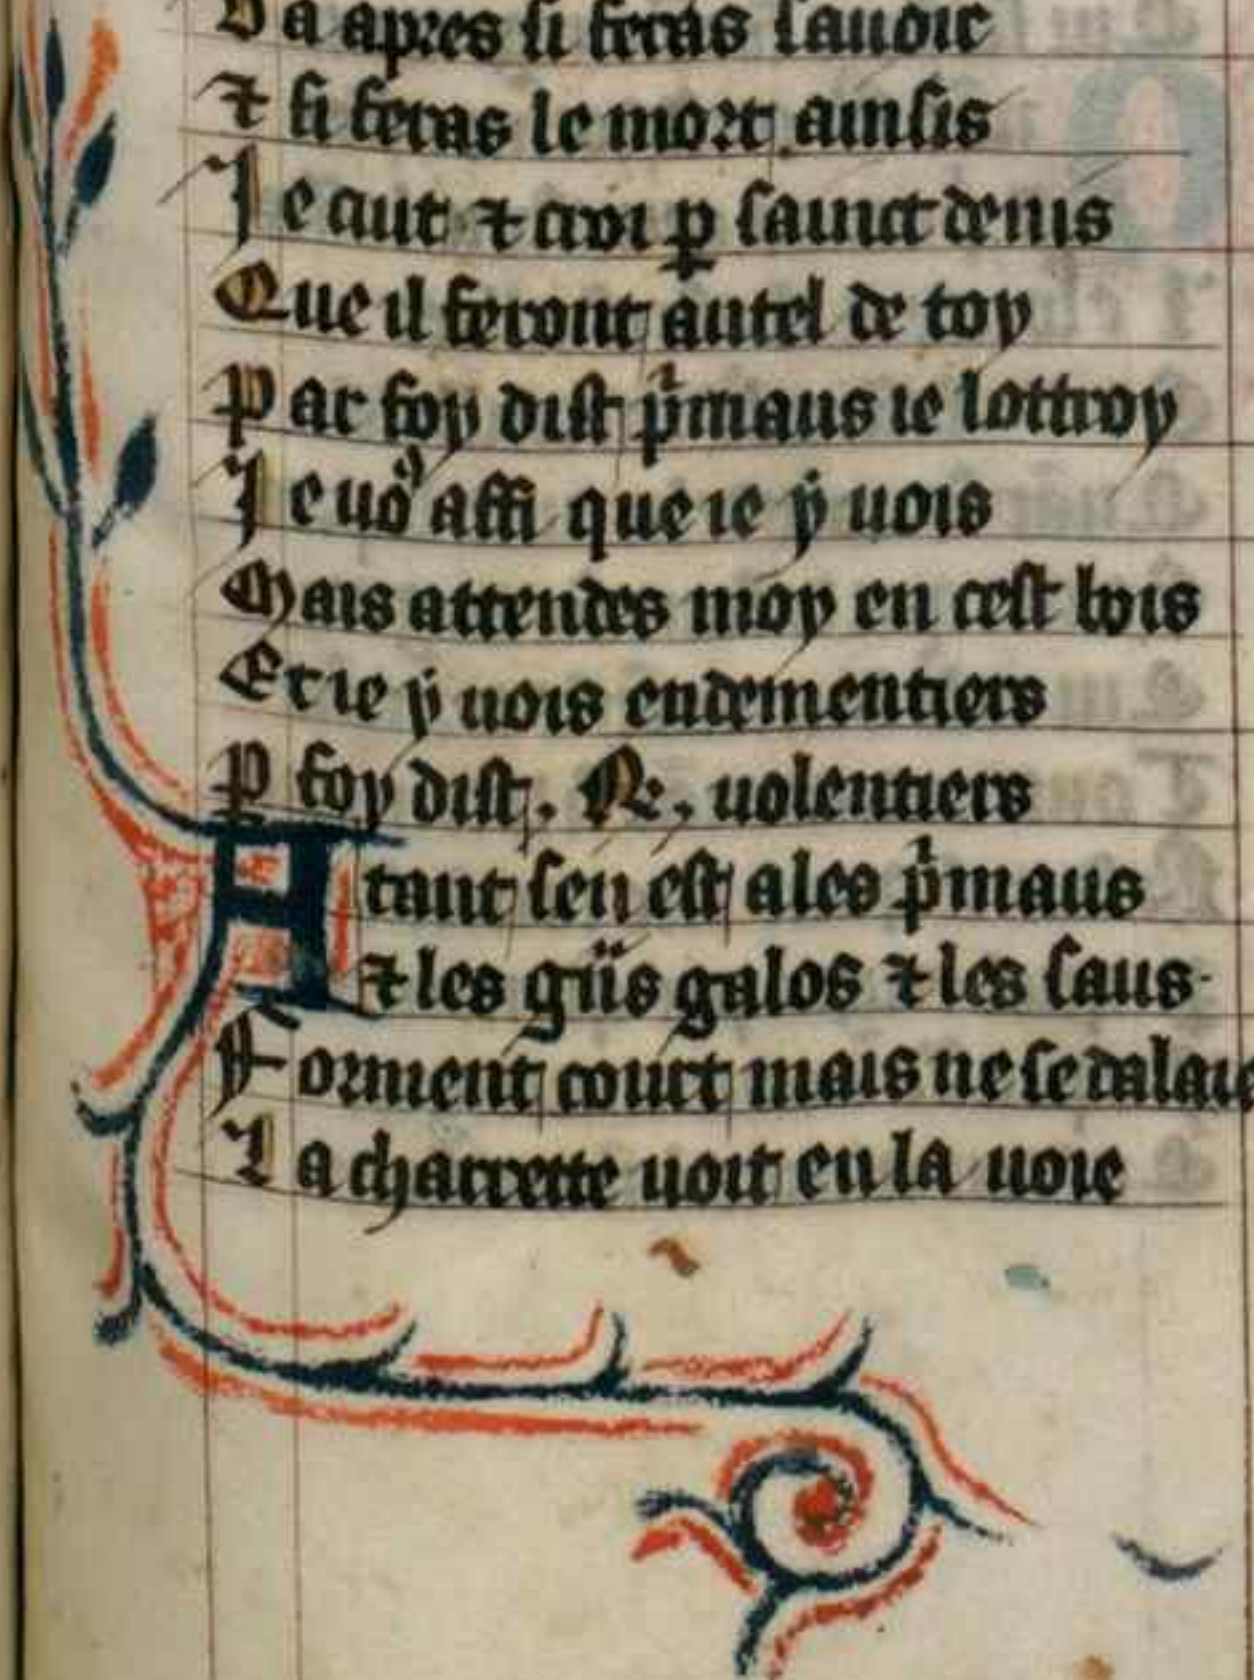 Va apres si feras laudie
⁊ si feras le mort ainsis
Je cuit ⁊ croi ꝑ sainct denis
Que il feront autel de toy
Par foy dist pͥmaus ie lottroy
Je uoꝰ affi que ie ẏ uois
Mais attendes moy en cest bois
Et ie ẏ uois endementiers
ꝑ foy dist . R . uolentiers
Atant sen est ales pͥmaus
⁊ les grans galos ⁊ les saus
Forment court mais ne se delaie
La charrette uoit en la uoie